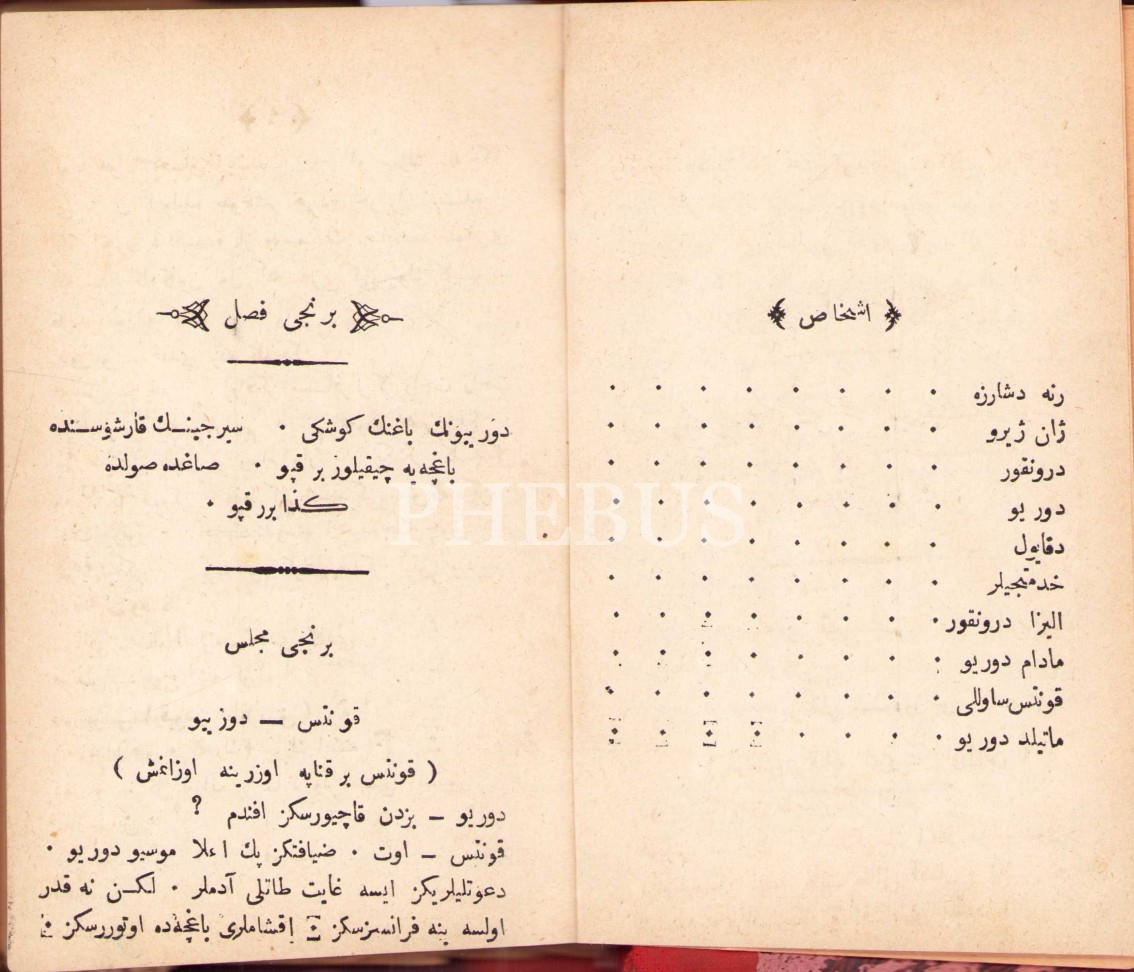 اشخاص
رنه دشارزه
ژان ژیرو
درونقور
دور یو
دقایول
خدمتجیلر
الیزا درونقور
مادام دوریو
قونتس ساوللی
ماتیلد دوریو
برنجی فصل
دوریونك باغنك كوشكی . سیرجینك قارشوسنده
باغچه‌یه چیقیلور بر قپو . صاغده صولده
كذا برر قپو .
برنجی مجلس
قونتس — دوریو
( قونتس بر قناپه اوزرینه اوزانمش )
دوریو — بزدن قاچیورسكز افندم ؟
قونتس — اوت . ضیافتكز پك اعلا موسیو دوریو .
دعوتلیلریكز ایسه غایت طاتلی آدملر . لكن نه قدر
اولسه ینه فرانسزسكز . اقشاملری باغچه‌ده اوتوررسكز .
PHEBUS